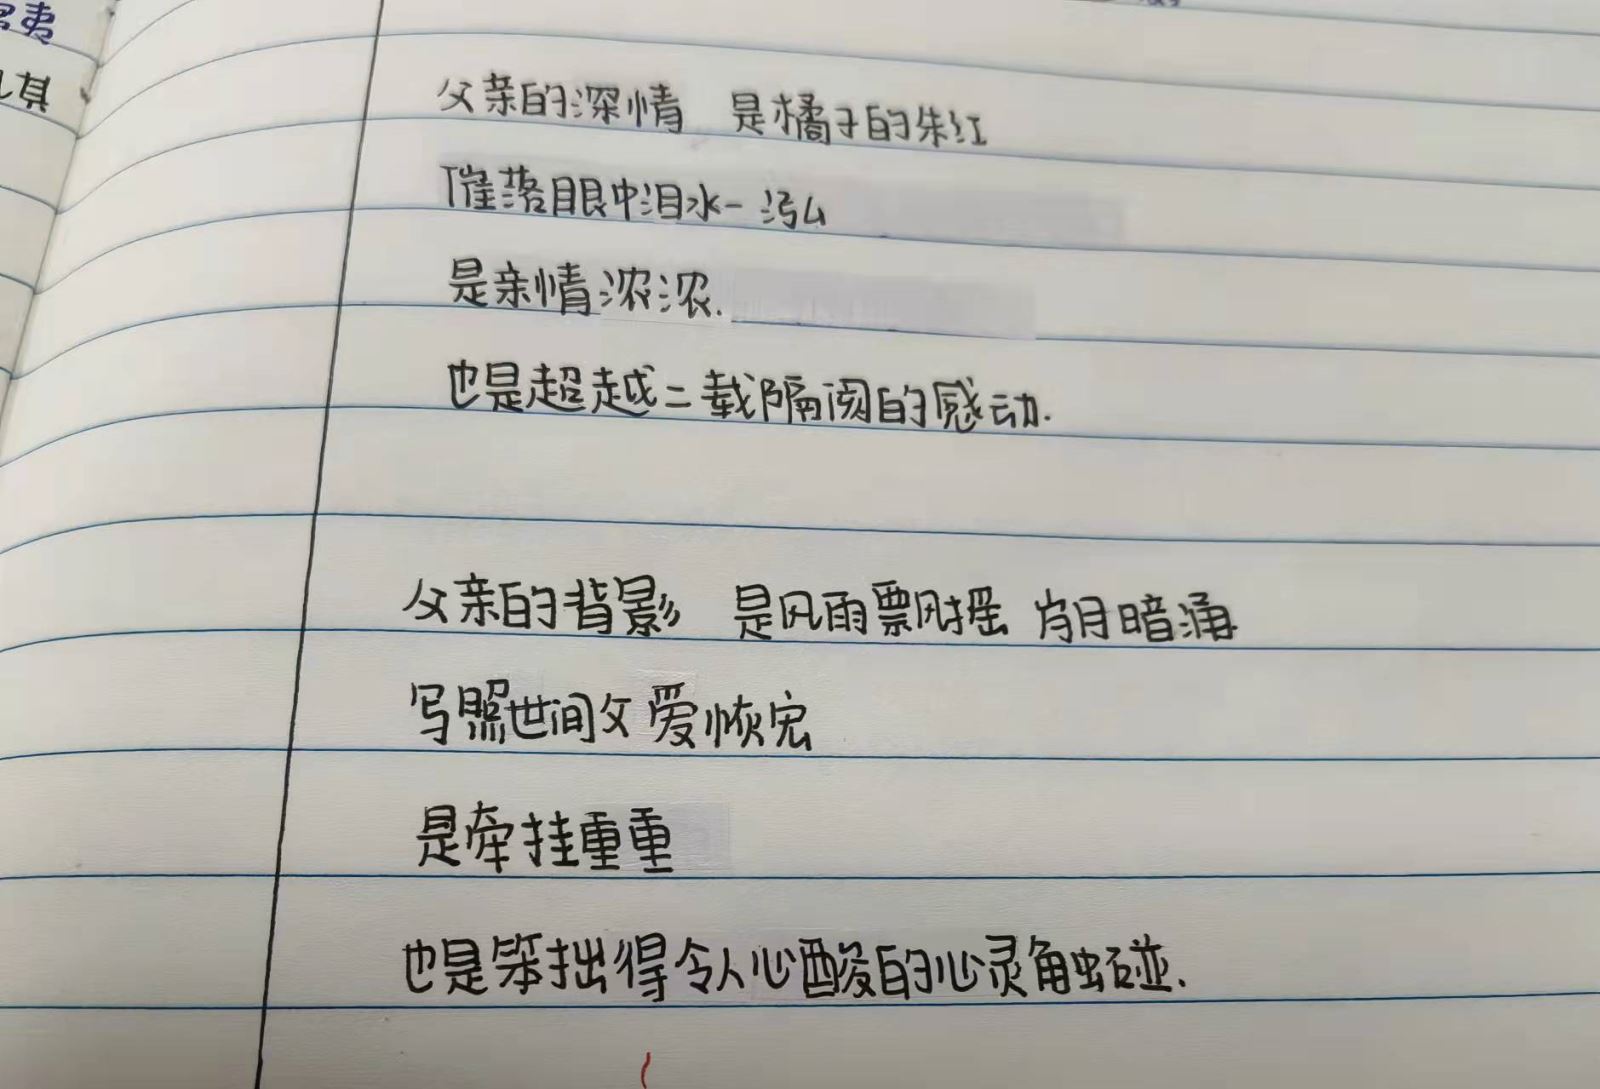 父亲的深情 是橘子的朱红
催落眼中泪水一泓
是亲情浓浓.
也是超越二载隔阂的感动.
父亲的背影 是风雨飘摇 岁月暗涌
写照世间父爱恢宏
是牵挂重重
也是笨拙得令人心酸的心灵触碰.